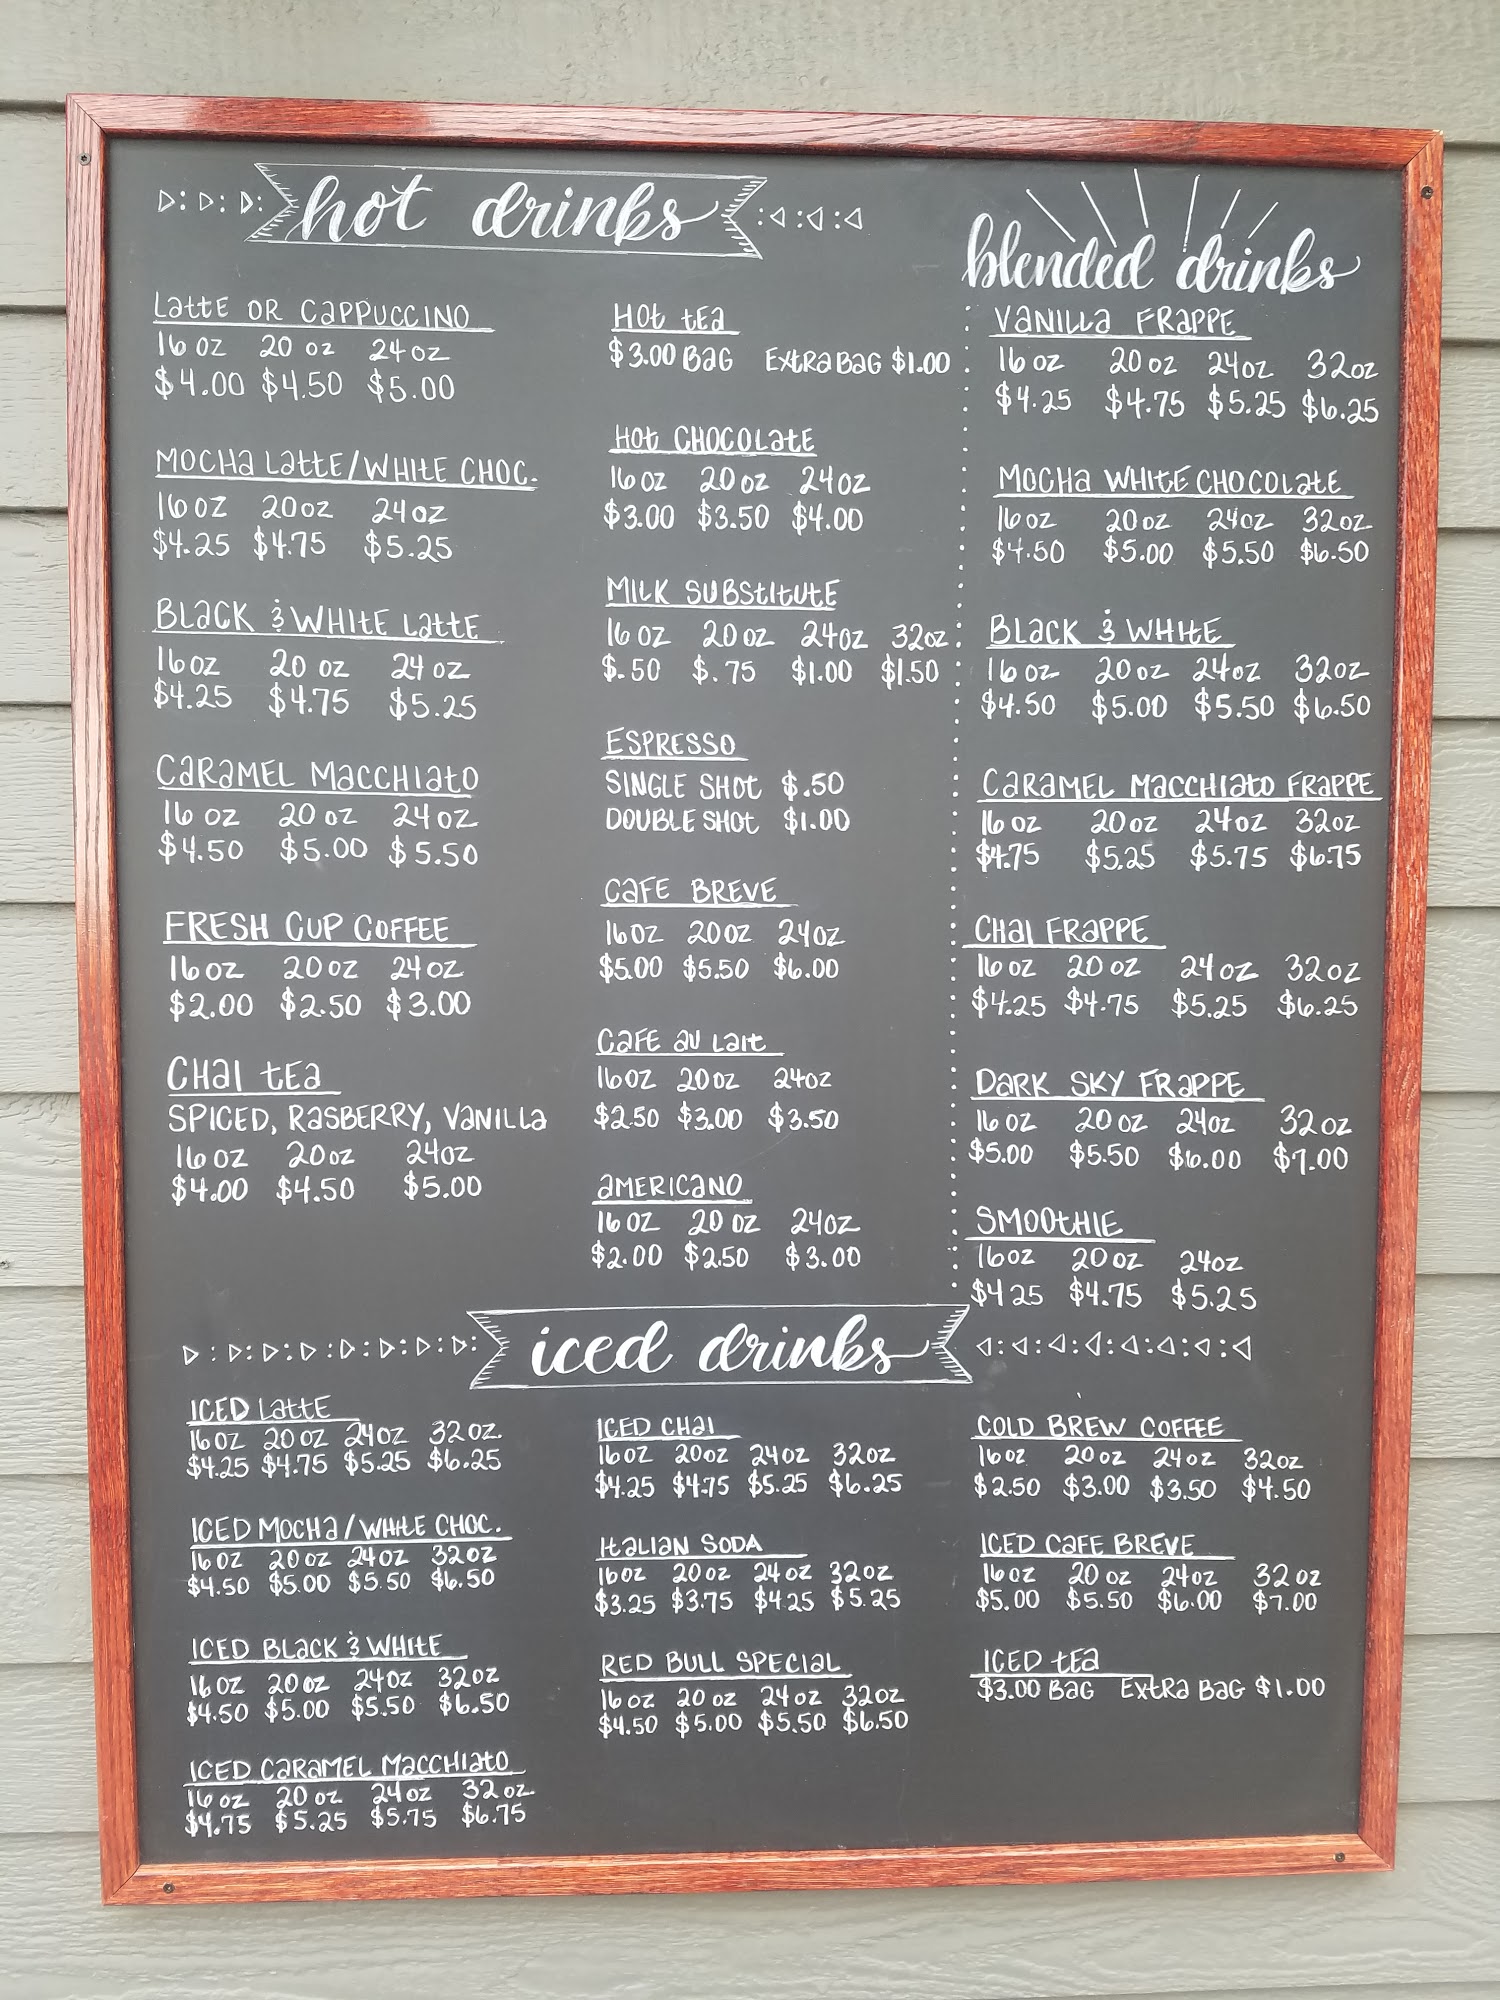 hot drinks
LattE OR CaPPUCCINO
16 oz 20 oz 24 oz
$4.00 $4.50 $5.00
MOCHa LattE/WHItE CHOC.
16 oz 20 oz 24 oz
$4.25 $4.75 $5.25
BLaCK & WHItE LattE
16 oz 20 oz 24 oz
$4.25 $4.75 $5.25
CaRaMEL MaCCHIatO
16 oz 20 oz 24 oz
$4.50 $5.00 $5.50
FRESH CUP COFFEE
16 oz 20 oz 24 oz
$2.00 $2.50 $3.00
CHaI tEa
SPICED, RaSBERRY, VaNILLa
16 oz 20 oz 24 oz
$4.00 $4.50 $5.00
HOt tEa
$3.00 BaG ExtRa BaG $1.00
HOt CHOCOLatE
16 oz 20 oz 24 oz
$3.00 $3.50 $4.00
MILK SUBStItUtE
16 oz 20 oz 24 oz 32 oz
$.50 $.75 $1.00 $1.50
ESPRESSO
SINGLE SHOt $.50
DOUBLE SHOt $1.00
CaFE BREVE
16 oz 20 oz 24 oz
$5.00 $5.50 $6.00
CaFE aU LaIt
16 oz 20 oz 24 oz
$2.50 $3.00 $3.50
aMERICaNO
16 oz 20 oz 24 oz
$2.00 $2.50 $3.00
blended drinks
VaNILLa FRaPPE
16 oz 20 oz 24 oz 32 oz
$4.25 $4.75 $5.25 $6.25
MOCHa WHItE CHOCOLatE
16 oz 20 oz 24 oz 32 oz
$4.50 $5.00 $5.50 $6.50
BLaCK & WHItE
16 oz 20 oz 24 oz 32 oz
$4.50 $5.00 $5.50 $6.50
CaRaMEL MaCCHIatO FRaPPE
16 oz 20 oz 24 oz 32 oz
$4.75 $5.25 $5.75 $6.75
CHaI FRaPPE
16 oz 20 oz 24 oz 32 oz
$4.25 $4.75 $5.25 $6.25
DaRK SKY FRaPPE
16 oz 20 oz 24 oz 32 oz
$5.00 $5.50 $6.00 $7.00
SMOOtHIE
16 oz 20 oz 24 oz
$4 25 $4.75 $5.25
iced drinks
ICED LattE
16 oz 20 oz 24 oz 32 oz.
$4.25 $4.75 $5.25 $6.25
ICED MOCHa/WHItE CHOC.
16 oz 20 oz 24 oz 32 oz
$4.50 $5.00 $5.50 $6.50
ICED BLaCK & WHItE
16 oz 20 oz 24 oz 32 oz
$4.50 $5.00 $5.50 $6.50
ICED CaRaMEL MaCCHIatO
16 oz 20 oz 24 oz 32 oz.
$4.75 $5.25 $5.75 $6.75
ICED CHaI
16 oz 20 oz 24 oz 32 oz
$4.25 $4.75 $5.25 $6.25
ItaLIaN SODa
16 oz 20 oz 24 oz 32 oz
$3.25 $3.75 $4.25 $5.25
RED BULL SPECIaL
16 oz 20 oz 24 oz 32 oz
$4.50 $5.00 $5.50 $6.50
COLD BREW COFFEE
16 oz 20 oz 24 oz 32 oz
$2.50 $3.00 $3.50 $4.50
ICED CaFE BREVE
16 oz 20 oz 24 oz 32 oz
$5.00 $5.50 $6.00 $7.00
ICED tEa
$3.00 BaG ExtRa BaG $1.00